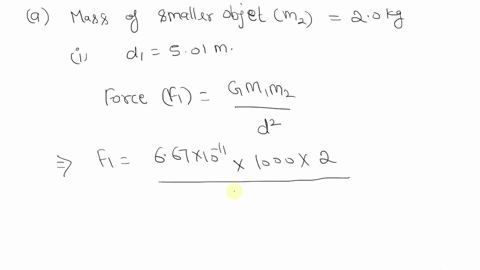 (a) Mass of smaller objet (m₂) = 2.0 kg
(i) d₁ = 5.01 m.
Force (F₁) = GM₁m₂ / d²
⇒ F₁ = 6.67×10⁻¹¹ × 1000 × 2